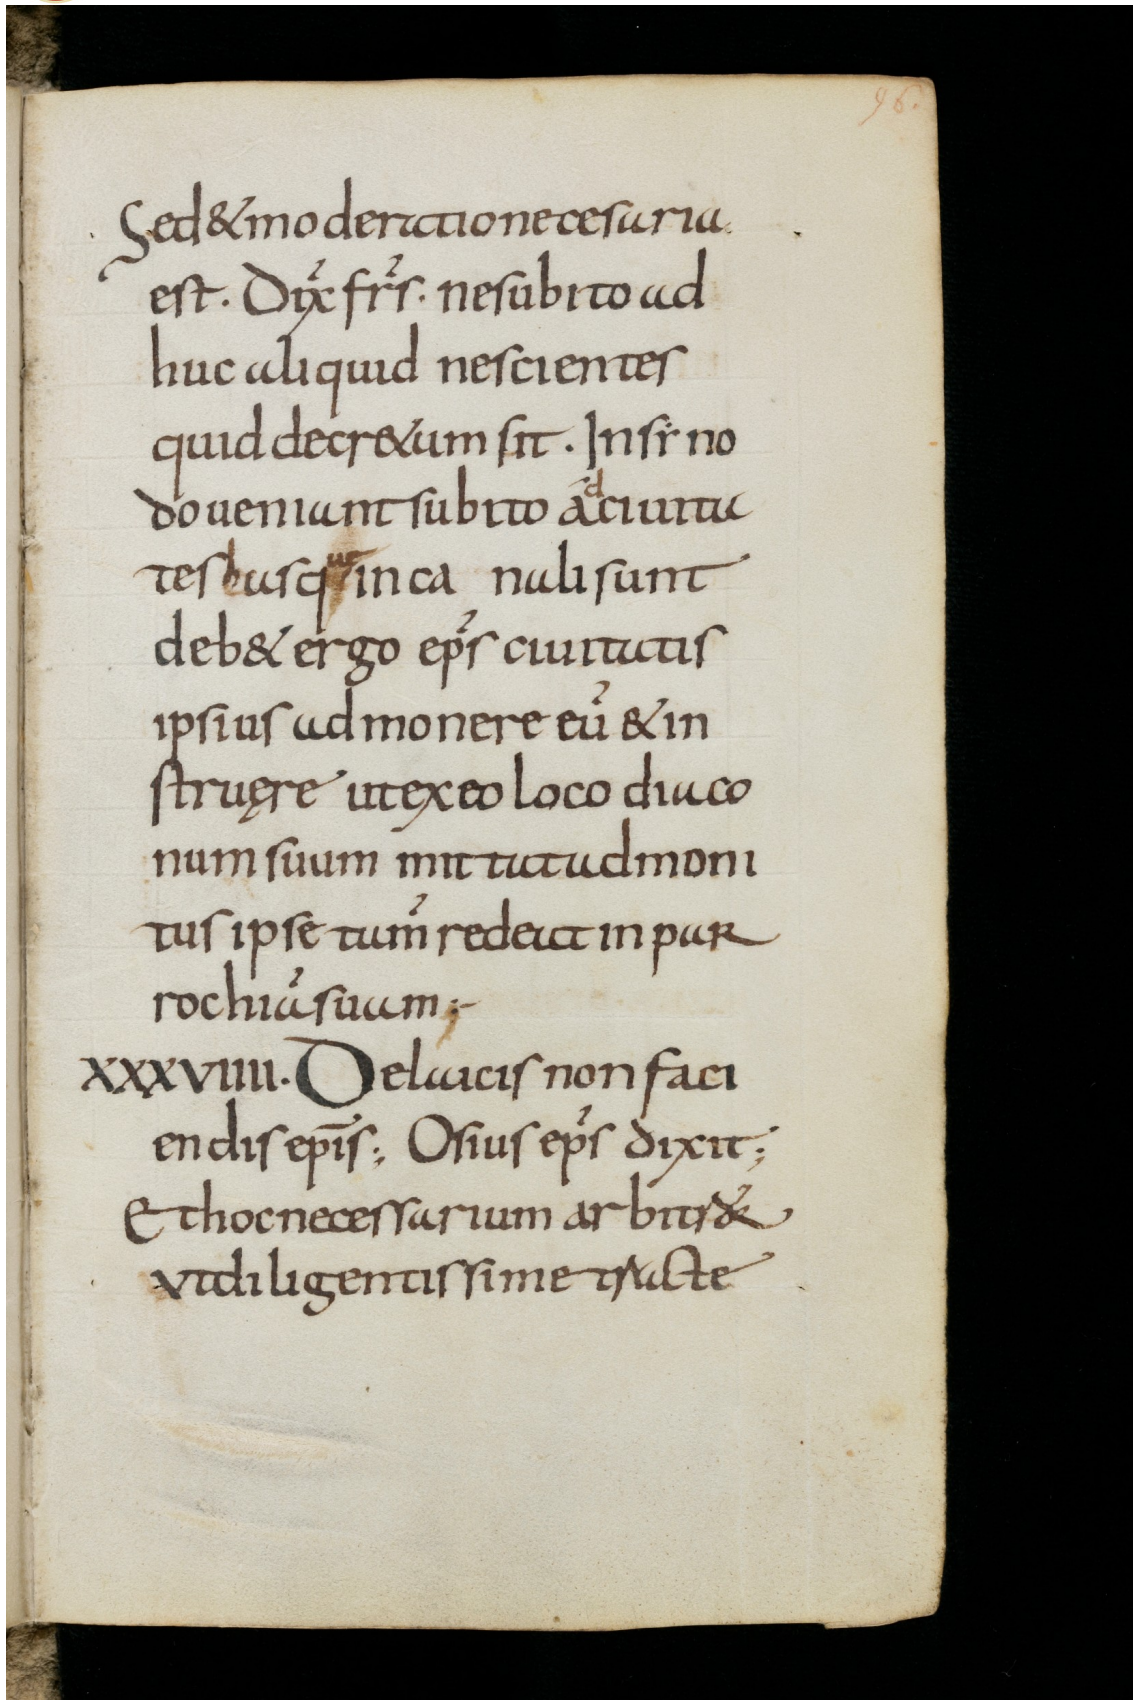 96.
Sed & moderatio necesaria
est. Dix̉ fr̉s. ne subito ad
huc aliquid nescientes
quid decr&um sit. In sr̄ no
do ueniant subito adciuita
tes
in ca nali sunt
deb& ergo ep̉s ciuitatis
ipsius admonere eủ & in
struęre ut ex eo loco diaco
num suum mittat admoni
tus ipse tam̉ redeat in par
rochiả suam;
XXXVIIII. De laicis non faci
endis ep̄is; Osius ep̉s dixit;
Et hoc necessarium arbitr&
ut diligentissime tracte